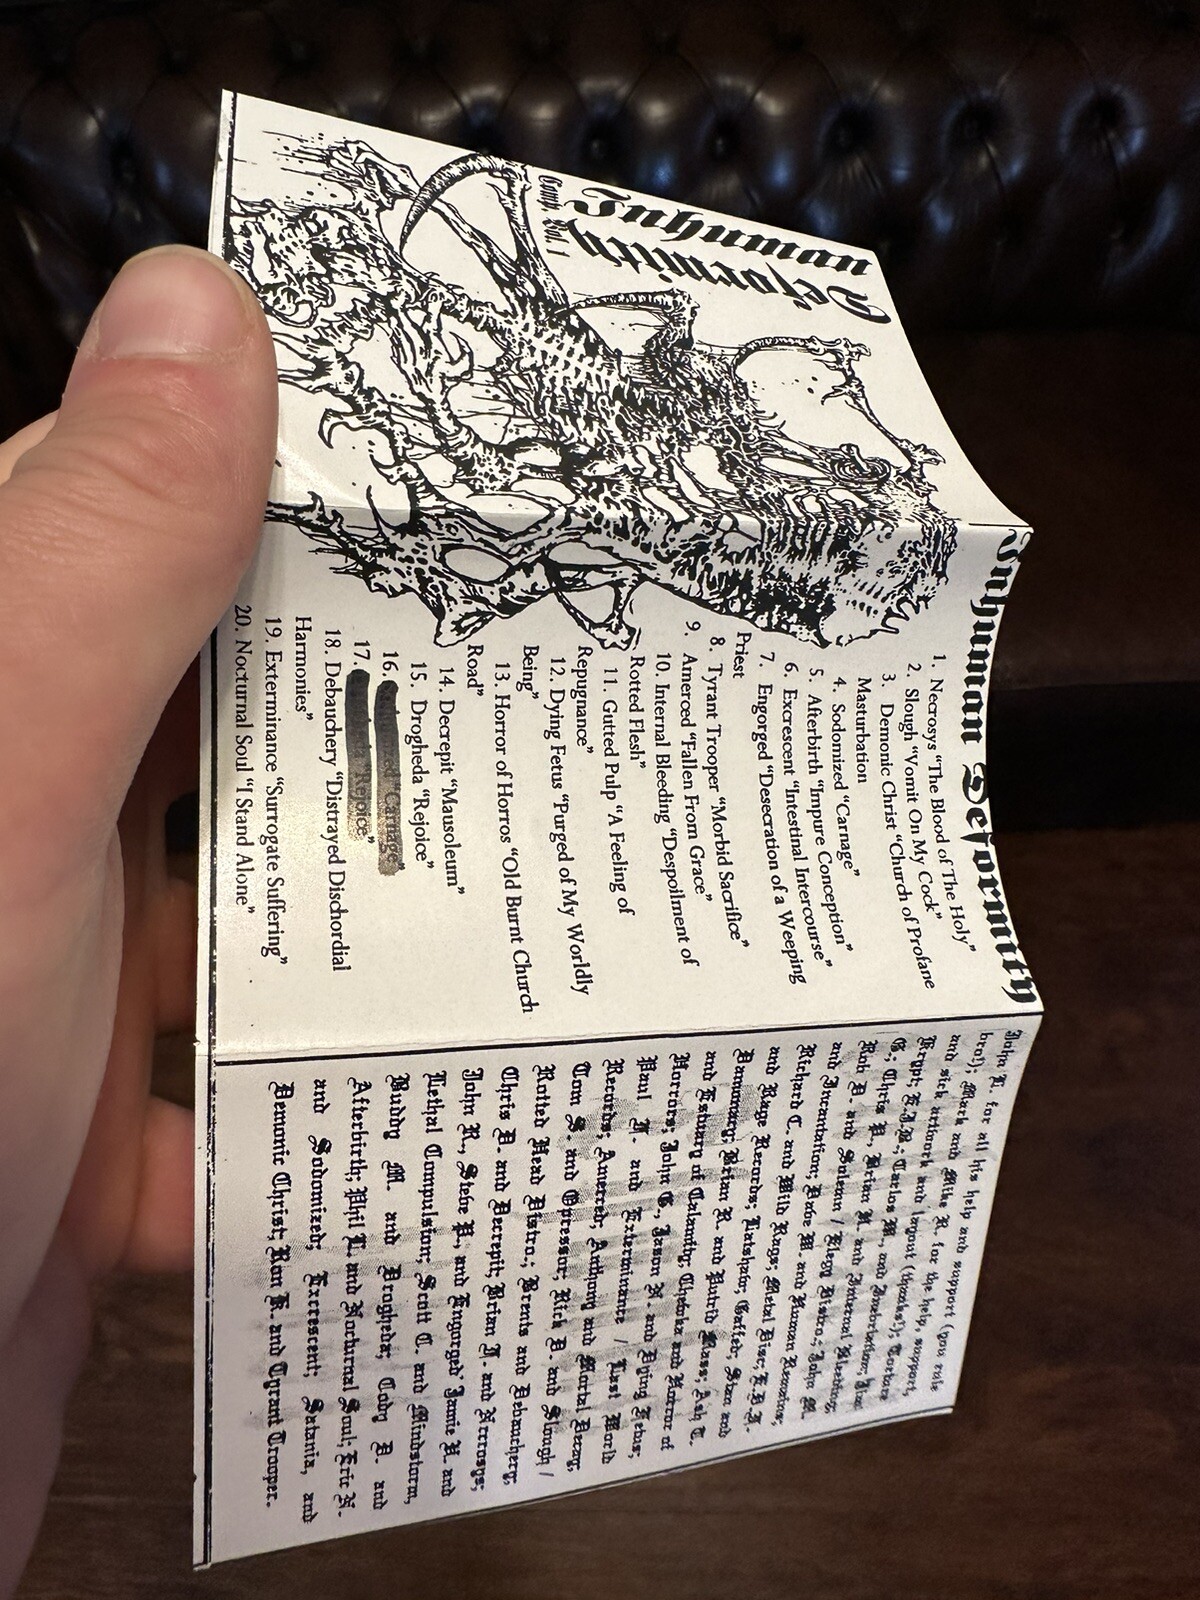 Inhuman
Deformity
Comp. Vol. 1
Inhuman Deformity
1. Necrosys “The Blood of The Holy”
2. Slough “Vomit On My Cock”
3. Demonic Christ “Church of Profane
Masturbation
4. Sodomized “Carnage”
5. Afterbirth “Impure Conception”
6. Excrescent “Intestinal Intercourse”
7. Engorged “Desecration of a Weeping
Priest
8. Tyrant Trooper “Morbid Sacrifice”
9. Amerced “Fallen From Grace”
10. Internal Bleeding “Despoilment of
Rotted Flesh”
11. Gutted Pulp “A Feeling of
Repugnance”
12. Dying Fetus “Purged of My Worldly
Being”
13. Horror of Horros “Old Burnt Church
Road”
14. Decrepit “Mausoleum”
15. Drogheda “Rejoice”
16. “Carnage”
17. “Rejoice”
18. Debauchery “Distrayed Dischordial
Harmonies”
19. Exterminance “Surrogate Suffering”
20. Nocturnal Soul “I Stand Alone”
John L. for all his help and support (you rule
bro!); Mark and Mike R. for the help, support,
and sick artwork and layout (thanks!); Torture
Krypt; E.J.B.; Carlos M., and Immortation; Jim
G.; Chris P., Brian H. and Internal Bleeding;
Rob D. and Solemn / Elegy Distro.; John M.
and Incantation; Dave W. and Human Remains;
Richard C. and Wild Rags; Metal Disc; E.D.K.
and Rage Records; Latshaw; Gaffed; Stan and
Damonacy; Brian R. and Putrid Mass; Ash T.
and Estuary of Calamity; and Horror of
Horrors; John G., Jason N. and Dying Fetus;
Paul J. and Exterminance / Last World
Records; Amerced; Anthony and Mortal Decay;
Tom S. and Opressor; Rick D. and Slough /
Rotted Head Distro.; Brents and Debauchery;
Chris D. and Decrepit; Brian J. and Necrosys;
John R., Steve P., and Engorged; Jamie H. and
Lethal Compulsion; Scott C. and Mindstorm,
Buddy M. and Drogheda; Cody D. and
Afterbirth; Phil L. and Nocturnal Soul; Eric N.
and Sodomized; Excrescent; Satania, and
Demonic Christ; Ron K. and Tyrant Trooper.